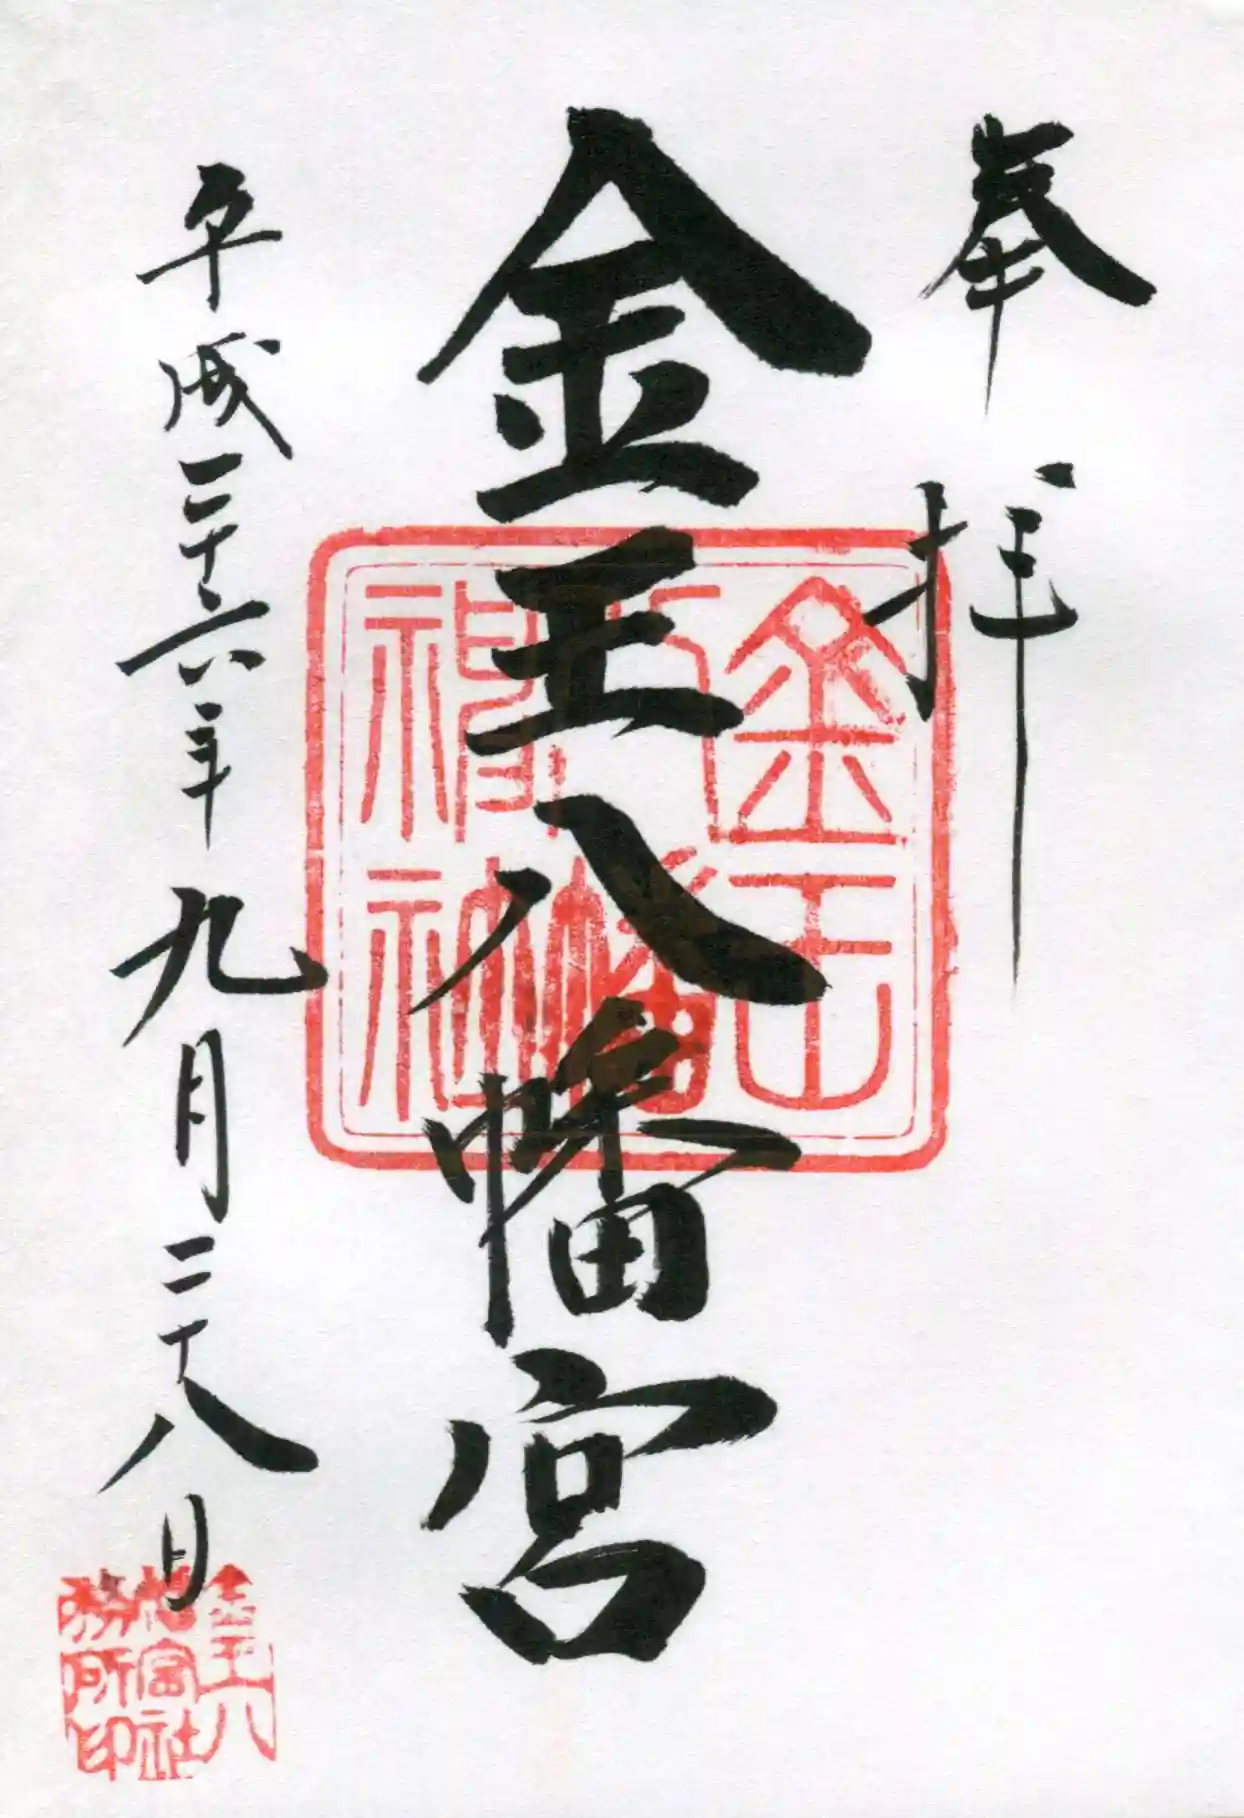 奉拝
金王八幡宮
平成二十六年九月二十八日
金王八幡神社
金王八
幡宮社
務所印